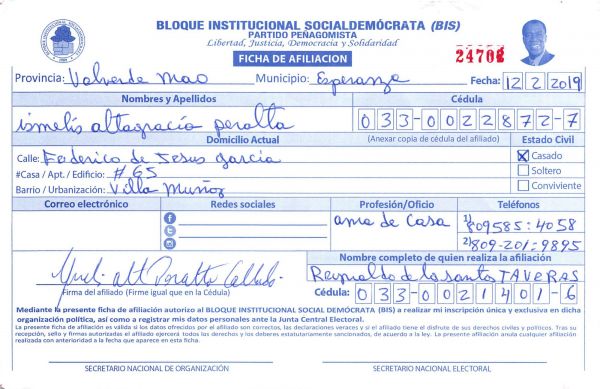 BLOQUE INSTITUCIONAL SOCIALDEMÓCRATA (BIS)
PARTIDO PEÑAGOMISTA
Libertad, Justicia, Democracia y Solidaridad
FICHA DE AFILIACION
24708
Provincia: Valverde Mao Municipio: Esperanza Fecha: 12 2 2019
Nombres y Apellidos Cédula
ismelis altagracia peralta 033-0022872-7
Domicilio Actual (Anexar copia de cédula del afiliado) Estado Civil
Calle: Federico de Jesus garcia X Casado
#Casa / Apt. / Edificio: # 65 Soltero
Barrio / Urbanización: Villa Muñoz Conviviente
Correo electrónico Redes sociales Profesión/Oficio Teléfonos
ama de Casa 1) 809585-4058
2) 809-201-9895
Nombre completo de quien realiza la afiliación
Reynaldo de la santos TAVERAS
Firma del afiliado (Firme igual que en la Cédula) Cédula: 033-0021401-6
Mediante la presente ficha de afiliación autorizo al BLOQUE INSTITUCIONAL SOCIAL DEMÓCRATA (BIS) a realizar mi inscripción única y exclusiva en dicha
organización política, así como a registrar mis datos personales ante la Junta Central Electoral.
La presente ficha de afiliación es válida si los datos ofrecidos por el afiliado son correctos, las declaraciones veraces y si el afiliado tiene el disfrute de sus derechos civiles y políticos. Tras su
recepción, sello y firmas autorizadas el afiliado ejercerá todos los derechos y los deberes estatutariamente sancionados, de acuerdo a la ley. La presente afiliación anula cualquier afiliación
realizada con anterioridad a la fecha que aparece en esta ficha.
SECRETARIO NACIONAL DE ORGANIZACIÓN SECRETARIO NACIONAL ELECTORAL